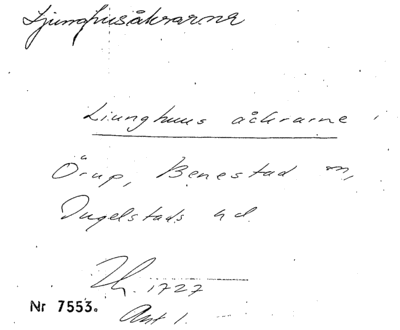 Ljunghusåkrarna
Liunghuus åckrarne i
Örup, Benestad sn,
Ingelstads hd.
Lh. 1727
Akt 1.
Nr 7553.